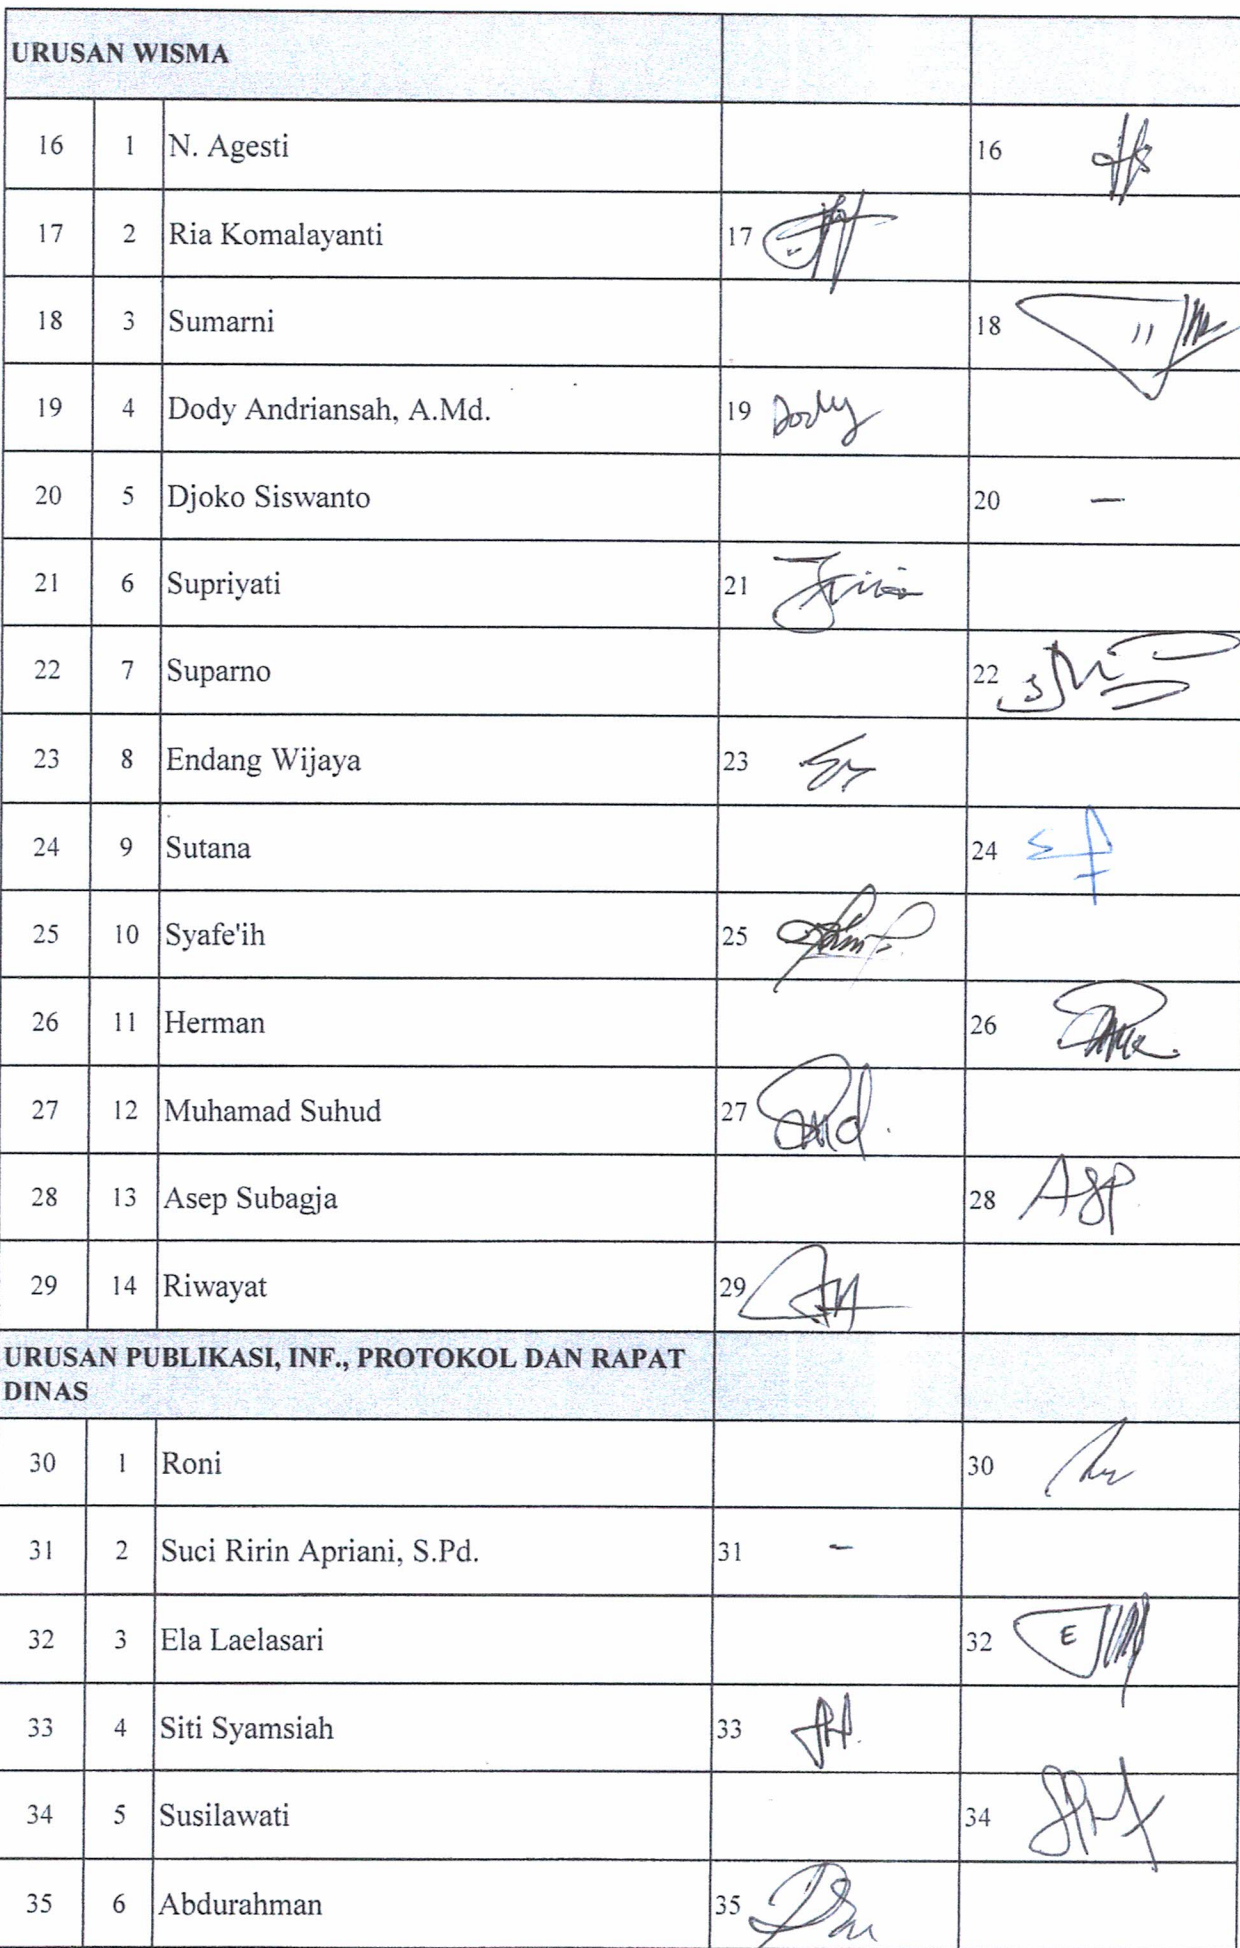 URUSAN WISMA
16 1 N. Agesti 16
17 2 Ria Komalayanti 17
18 3 Sumarni 18
19 4 Dody Andriansah, A.Md. 19 Dody
20 5 Djoko Siswanto 20 –
21 6 Supriyati 21
22 7 Suparno 22
23 8 Endang Wijaya 23
24 9 Sutana 24
25 10 Syafe'ih 25
26 11 Herman 26
27 12 Muhamad Suhud 27
28 13 Asep Subagja 28
29 14 Riwayat 29
URUSAN PUBLIKASI, INF., PROTOKOL DAN RAPAT
DINAS
30 1 Roni 30
31 2 Suci Ririn Apriani, S.Pd. 31 -
32 3 Ela Laelasari 32
33 4 Siti Syamsiah 33
34 5 Susilawati 34
35 6 Abdurahman 35